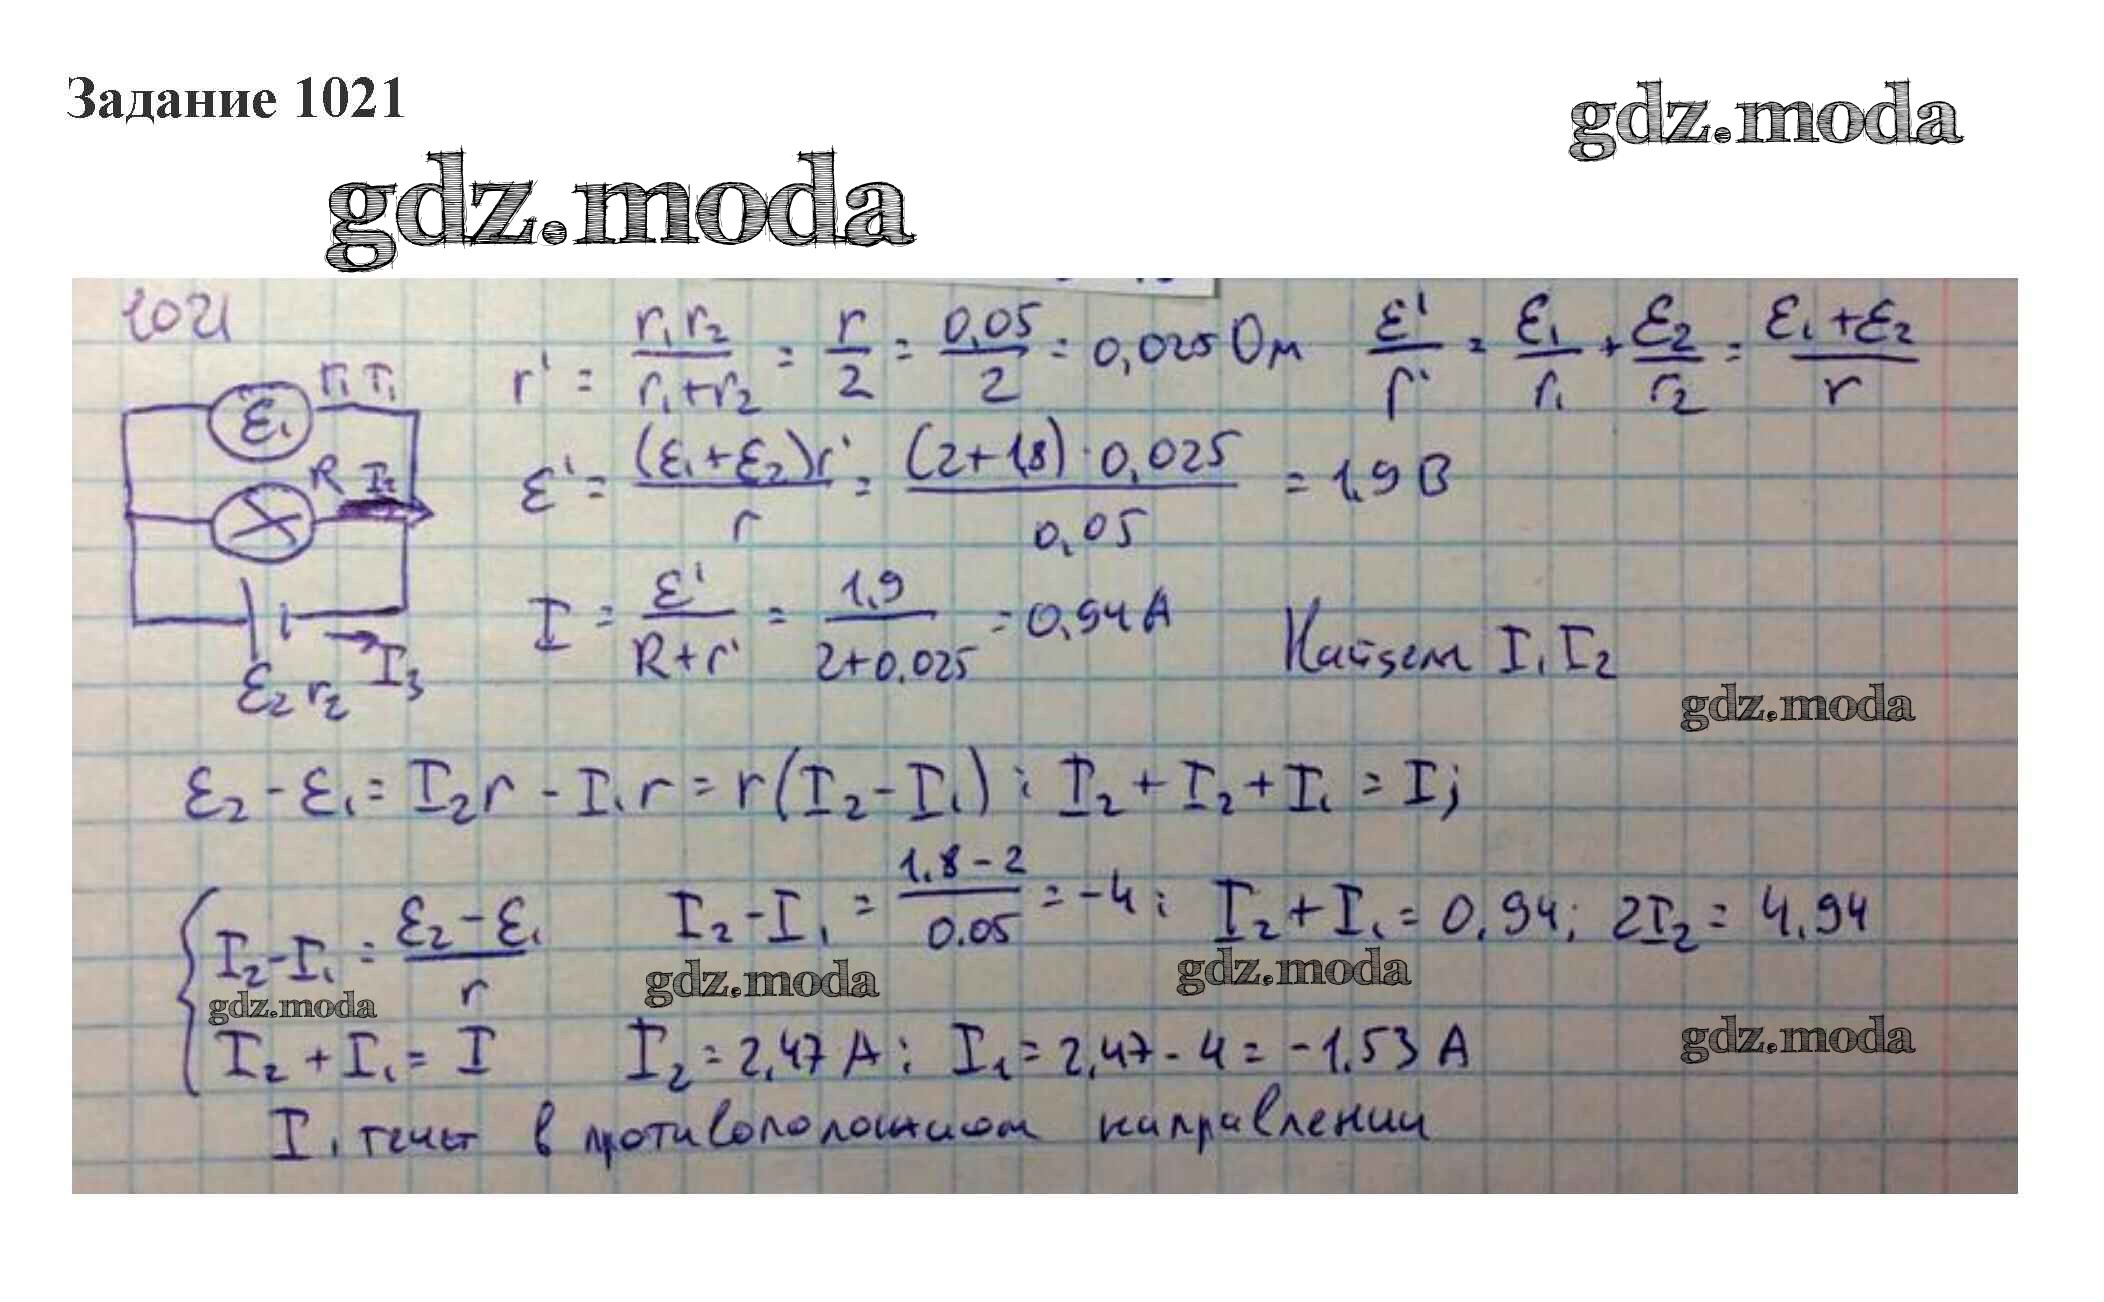 Задание 1021
gdz.moda
gdz.moda
1021
r' = r₁r₂/(r₁+r₂) = r/2 = 0,05/2 = 0,025 Ом ε'/r' = ε₁/r₁ + ε₂/r₂ = (ε₁+ε₂)/r
ε₁ r₁ I₁
R I₂
ε₂ r₂ I₃
ε' = (ε₁+ε₂)r'/r = (2+1,8)·0,025/0,05 = 1,9 В
I = ε'/(R+r') = 1,9/(2+0.025) = 0,94 А Найдем I₁ I₂
gdz.moda
ε₂ - ε₁ = I₂r - I₁r = r(I₂ - I₁); I₂ + I₂ + I₁ = I;
{ I₂-I₁ = (ε₂-ε₁)/r I₂ - I₁ = (1.8-2)/0.05 = -4; I₂ + I₁ = 0,94; 2I₂ = 4,94
gdz.moda gdz.moda gdz.moda
I₂ + I₁ = I I₂ = 2,47 А; I₁ = 2,47 - 4 = -1,53 А
gdz.moda
I₁ течет в противоположном направлении